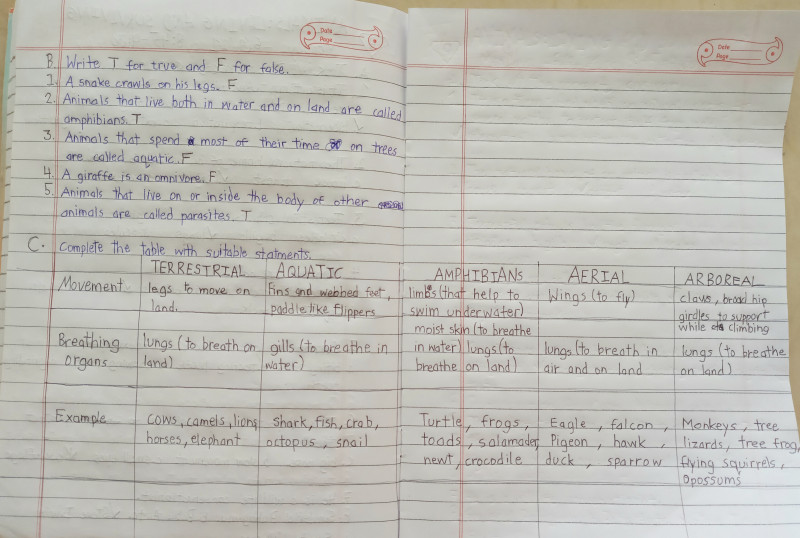 Date
Page
Date
Page
B. Write T for true and F for false.
1. A snake crawls on his legs. F
2. Animals that live both in water and on land are called
amphibians. T
3. Animals that spend most of their time on trees
are called aquatic. F
4. A giraffe is an omnivore. F
5. Animals that live on or inside the body of other
animals are called parasites. T
C. Complete the table with suitable statments.
TERRESTRIAL AQUATIC AMPHIBIANS AERIAL ARBOREAL
Movement legs to move on Fins and webbed feet, limbs (that help to Wings (to fly) claws, broad hip
land. paddle like flippers swim underwater) girdles to support
moist skin (to breathe while climbing
Breathing lungs (to breath on gills (to breathe in in water) lungs (to lungs (to breath in lungs (to breathe
organs land) water) breathe on land) air and on land on land)
Example cows, camels, lions, shark, fish, crab, Turtle, frogs, Eagle, falcon, Monkeys, tree
horses, elephant octopus, snail toads, salamader, Pigeon, hawk, lizards, tree frog,
newt, crocodile duck, sparrow flying squirrels,
opossums